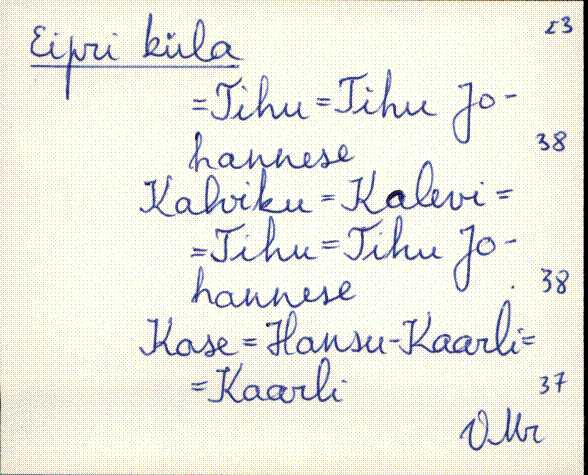 Eipri küla 23
=Tihu=Tihu Jo-
hannese 38
Kalviku=Kalevi=
=Tihu=Tihu Jo-
hannese 38
Kase=Hansu-Kaarli=
=Kaarli 37
VMr